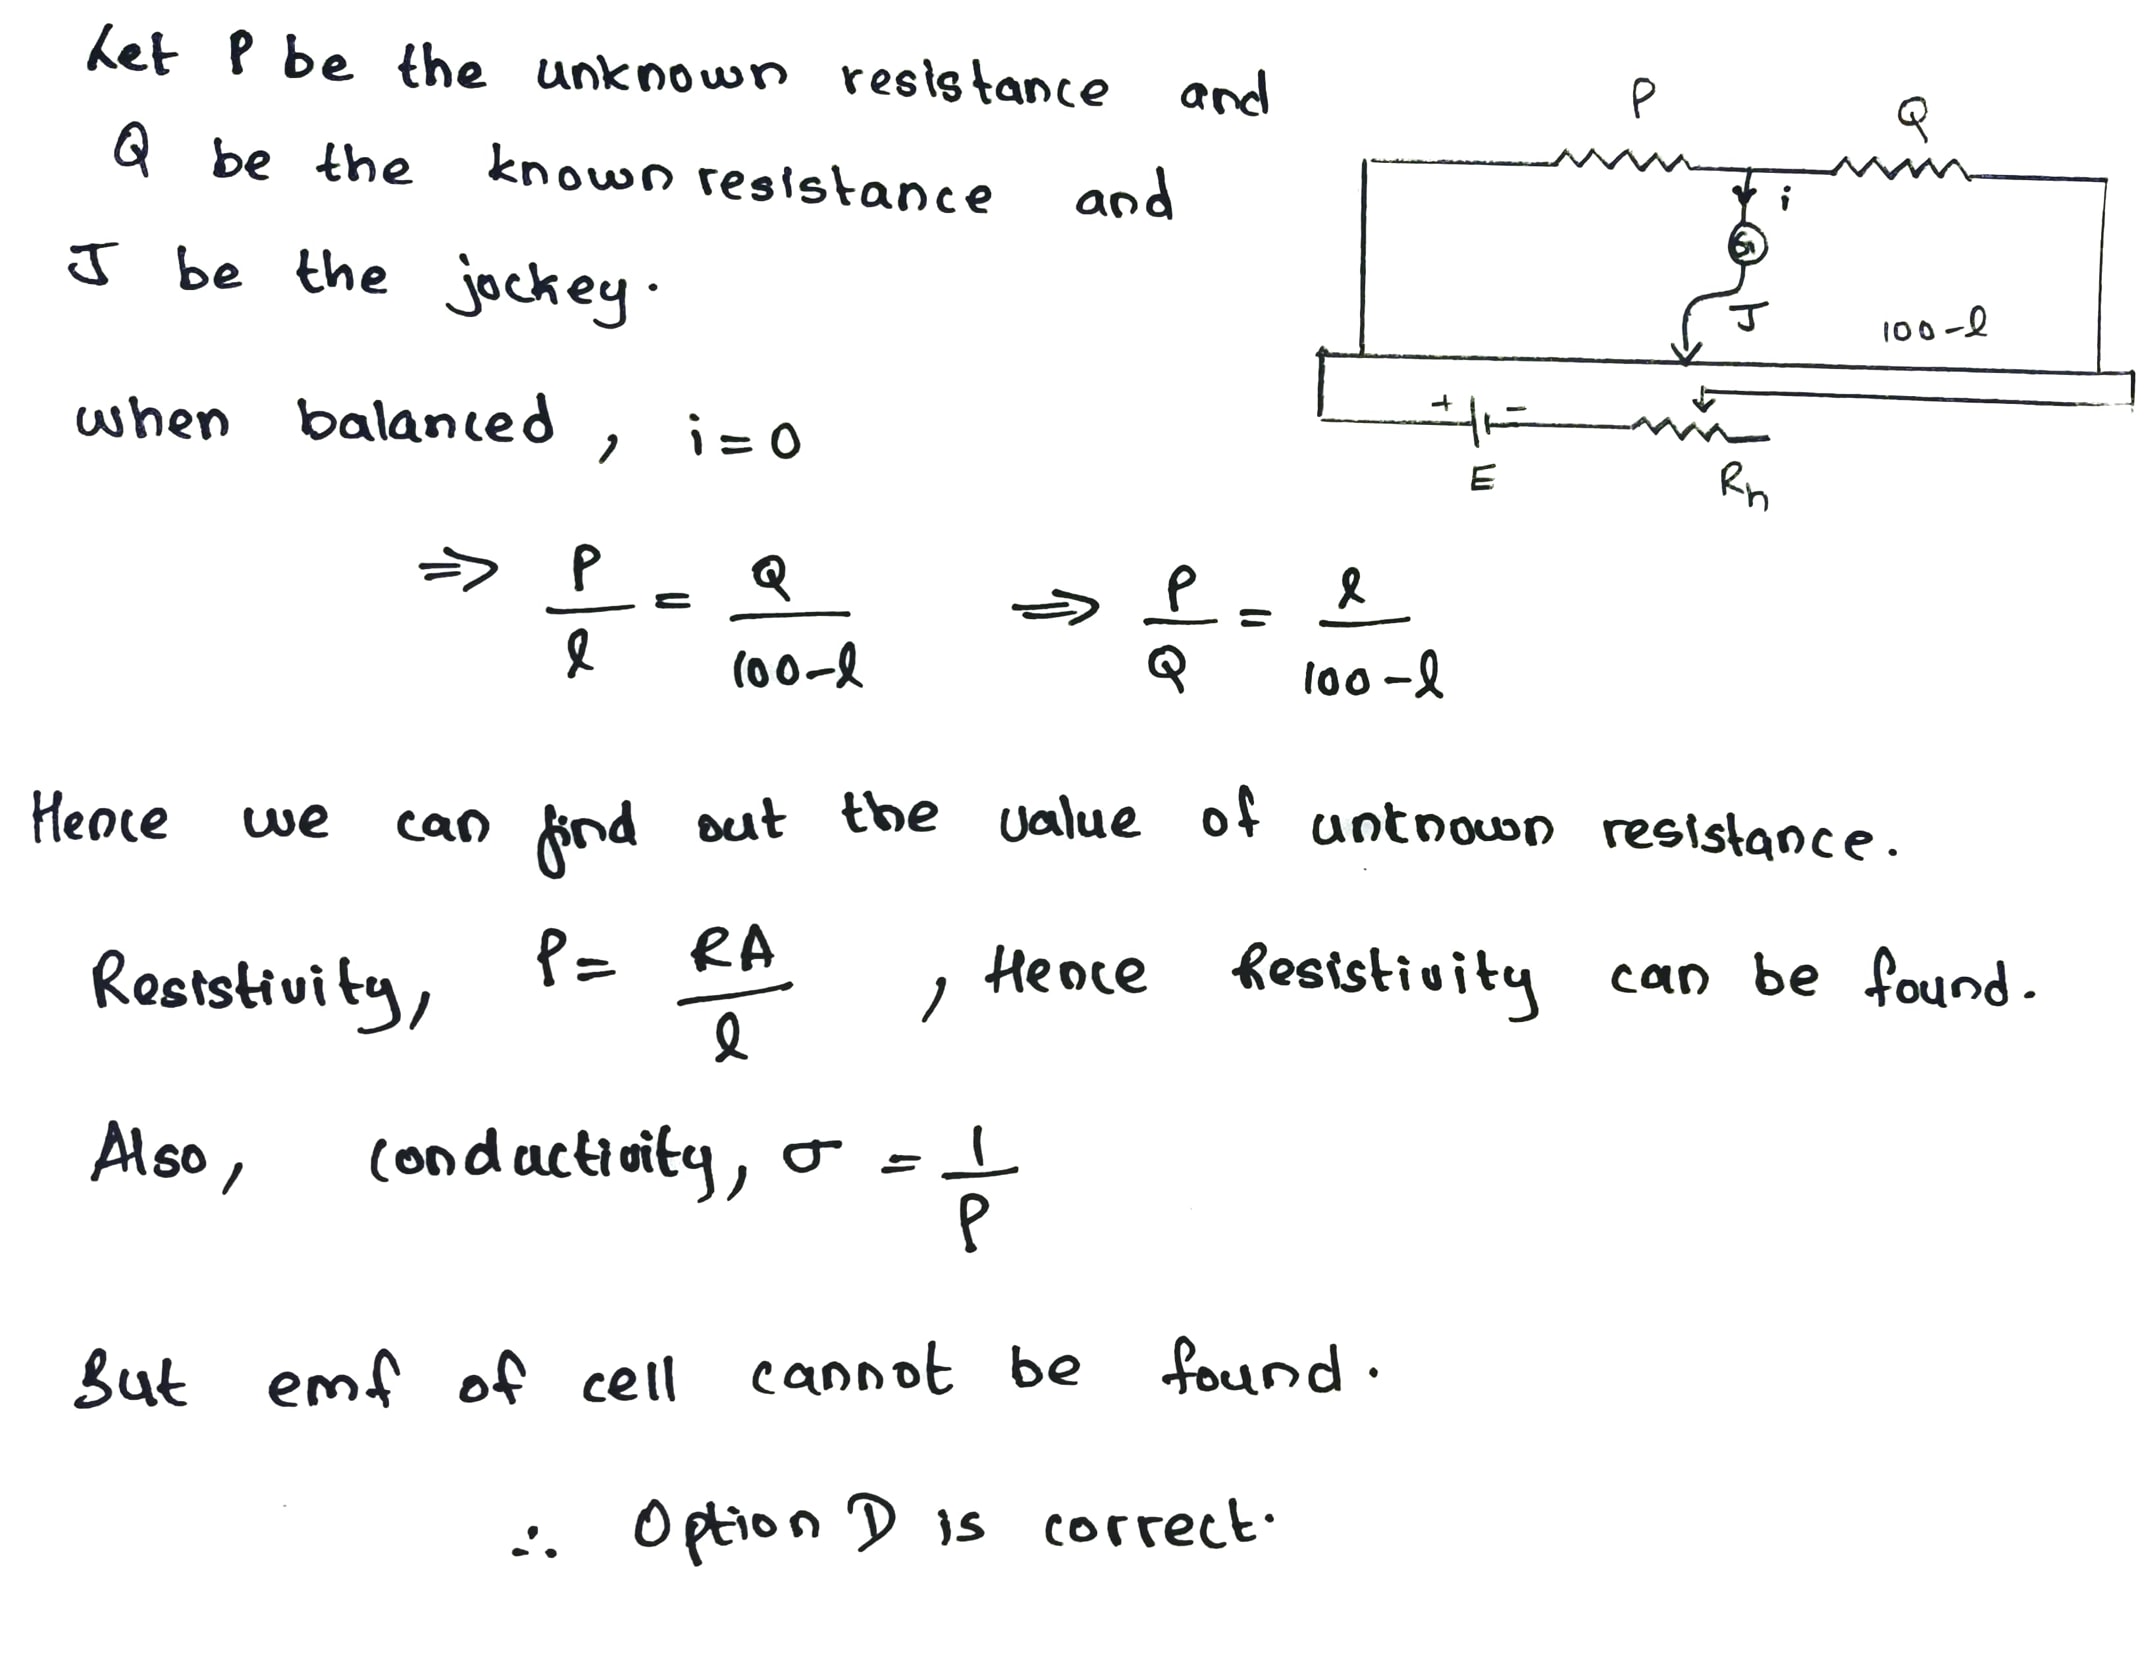 Let P be the unknown resistance and
Q be the known resistance and
J be the jockey.
when balanced, i=0
⇒ P/l = Q/(100-l) ⇒ P/Q = l/(100-l)
Hence we can find out the value of unknown resistance.
Resistivity, ρ = RA/l, Hence Resistivity can be found.
Also, conductivity, σ = 1/ρ
But emf of cell cannot be found.
∴ Option D is correct.
P
Q
i
G
J
100-l
+ -
E
Rh